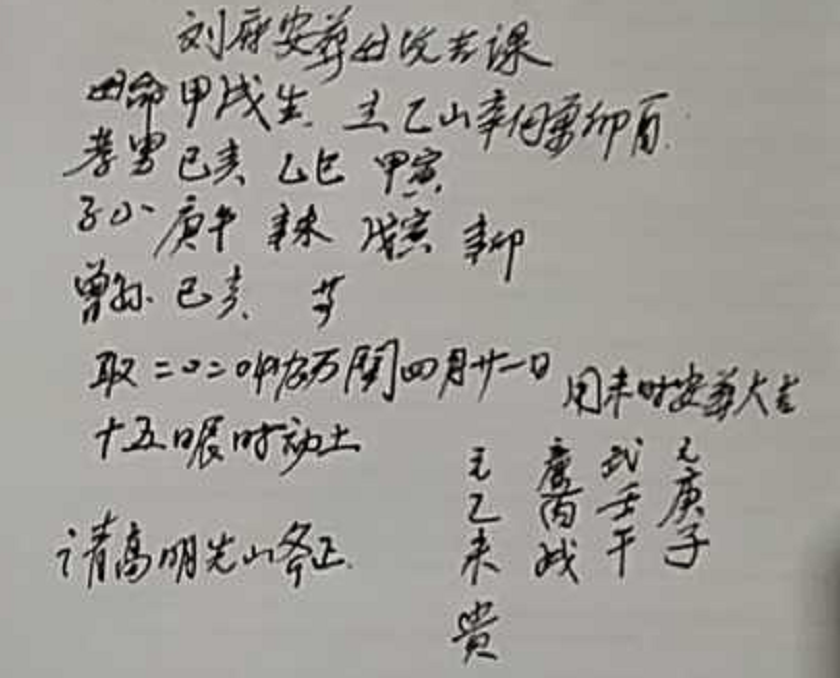 刘府安葬母坟吉课
母命甲戌生 主乙山辛向兼卯酉
孝男 己亥 乙巳 甲寅
子小 庚午 辛未 戊寅 辛卯
曾孙 己亥 等
取二〇二〇年农历闰四月廿一日 用未时安葬大吉
十五日辰时动土
请高明先山斧正
元庚子
武壬午
廉丙戌
元乙未 贵